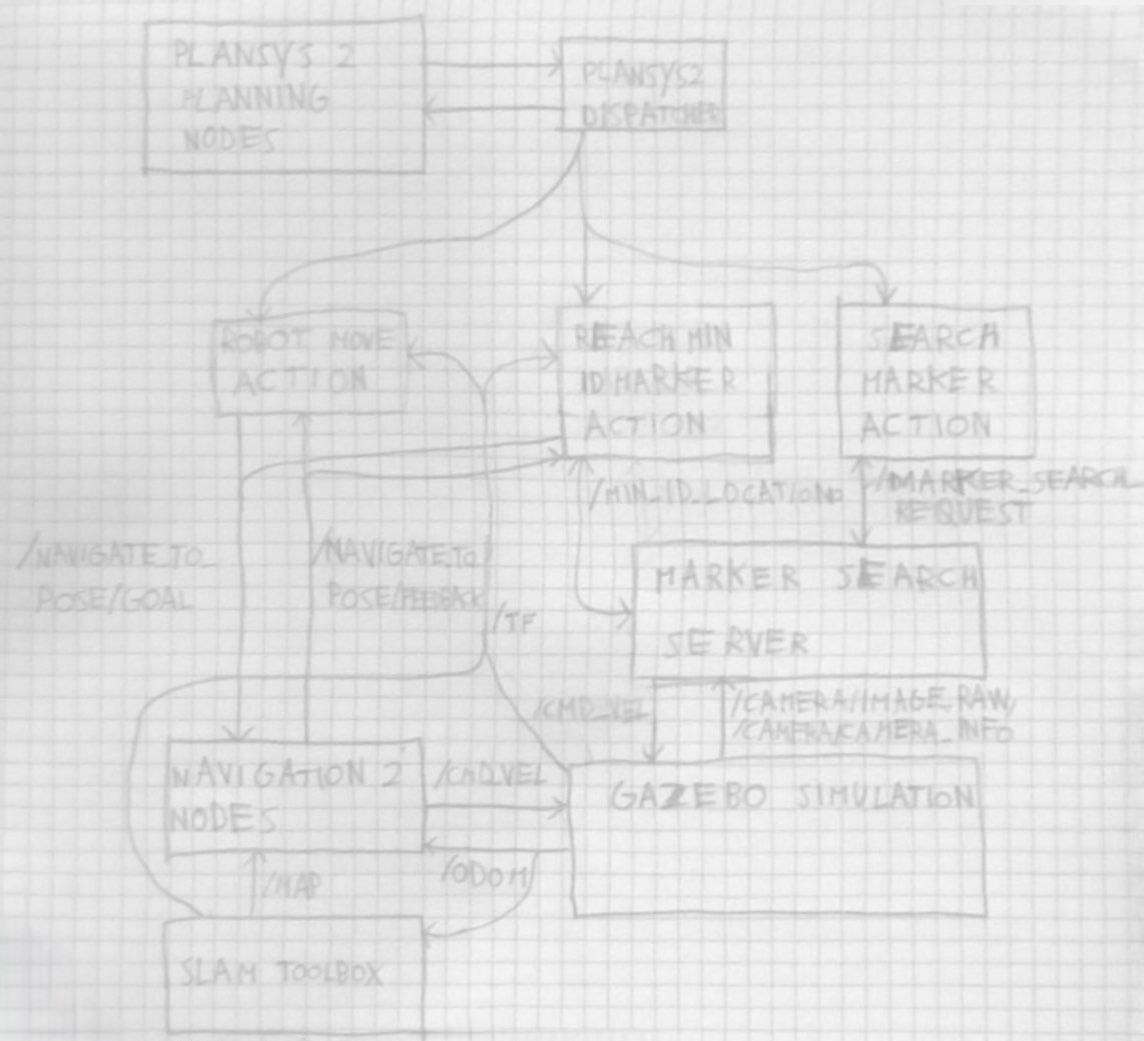 PLANSYS 2
PLANNING
NODES
PLANSYS2
DISPATCHER
ROBOT MOVE
ACTION
REACH MIN
ID MARKER
ACTION
SEARCH
MARKER
ACTION
/MIN_ID_LOCATION
/MARKER_SEARCH_
REQUEST
/NAVIGATE_TO_
POSE/GOAL
/NAVIGATE_TO
POSE/FEEDBACK
/TF
MARKER SEARCH
SERVER
/CMD_VEL
/CAMERA/IMAGE_RAW,
/CAMERA/CAMERA_INFO
NAVIGATION 2
NODES
/CMD_VEL
GAZEBO SIMULATION
/ODOM
/MAP
SLAM TOOLBOX